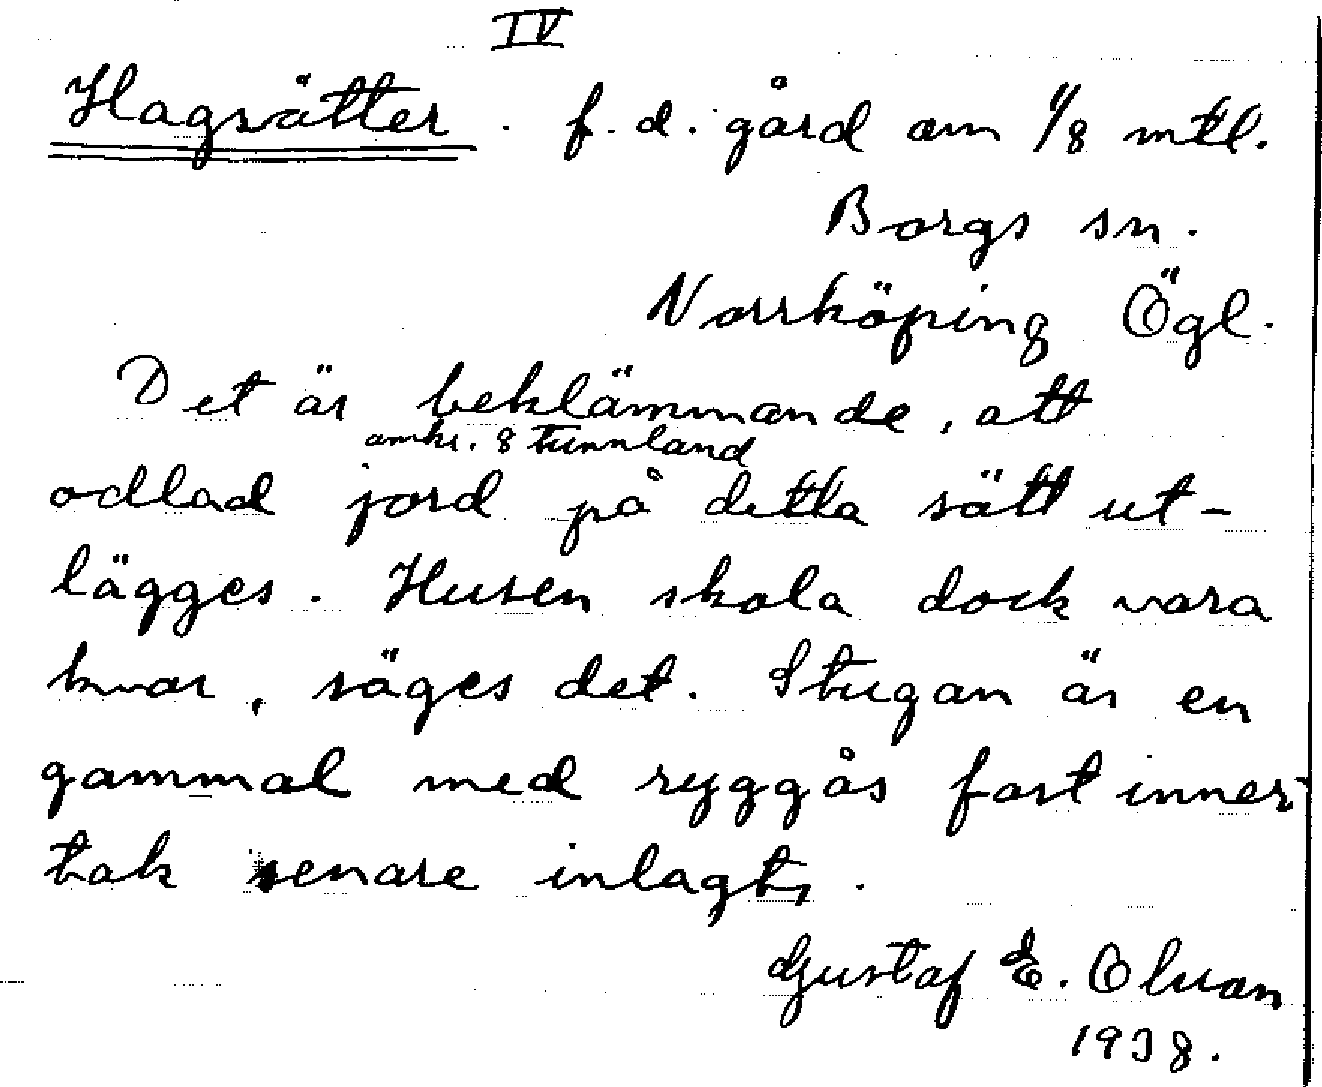 IV
Hagsätter. f.d. gård om 1/8 mtl.
Borgs sn.
Norrköping Ögl.
Det är beklämmande, att
omkr. 8 tunnland
odlad jord på detta sätt ut-
lägges. Husen skola dock vara
kvar, säges det. Stugan är en
gammal med ryggås fast inner-
tak senare inlagts.
Gustaf E. Olsson
1938.